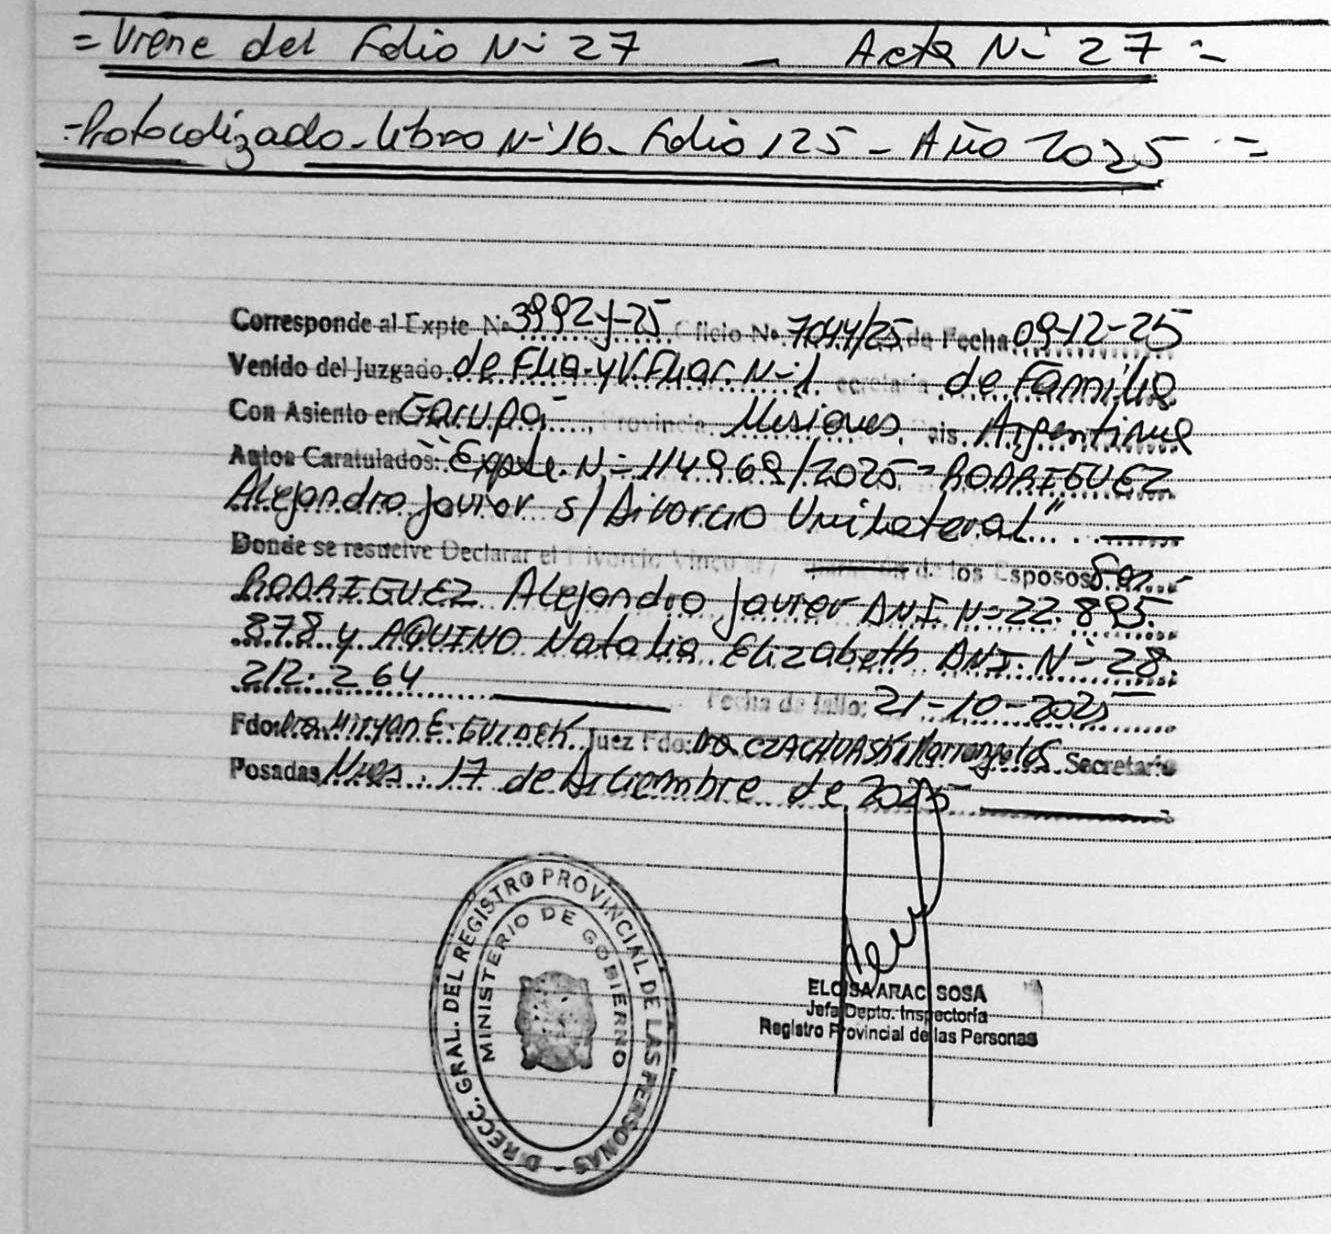 = Viene del Folio N- 27 - Acta N- 27 =
= Protocolizado - Libro N- 16 - Folio 125 - Año 2025 =
Corresponde al Expte Nº 3992-Y-25 Oficio Nº 7044/25 de Fecha 09-12-25
Venido del Juzgado de Flia. y V. Fliar. N-1 Secretaria de Familia
Con Asiento en Garupá, Provincia Misiones Pais Argentina
Autos Caratulados: "Expte. N- 114969/2025 = RODRIGUEZ
Alejandro Javier s/ Divorcio Unilateral"
Donde se resuelve Declarar el Divorcio Vincular / de los Esposos
RODRIGUEZ Alejandro Javier D.N.I. N- 22.895.
878 y AQUINO Natalia Elizabeth DNI. N- 28.
212.264 Fecha de fallo: 21-10-2025
Fdo: Dra. Miryan E. Juez Fdo: Secretario
Posadas, Mnes. 17 de Diciembre de 2025
DIRECC. GRAL. DEL REGISTRO PROVINCIAL DE LAS PERSONAS -
MINISTERIO DE GOBIERNO
ELOISA ARAC SOSA
Jefa Depto. Inspectoría
Registro Provincial de las Personas